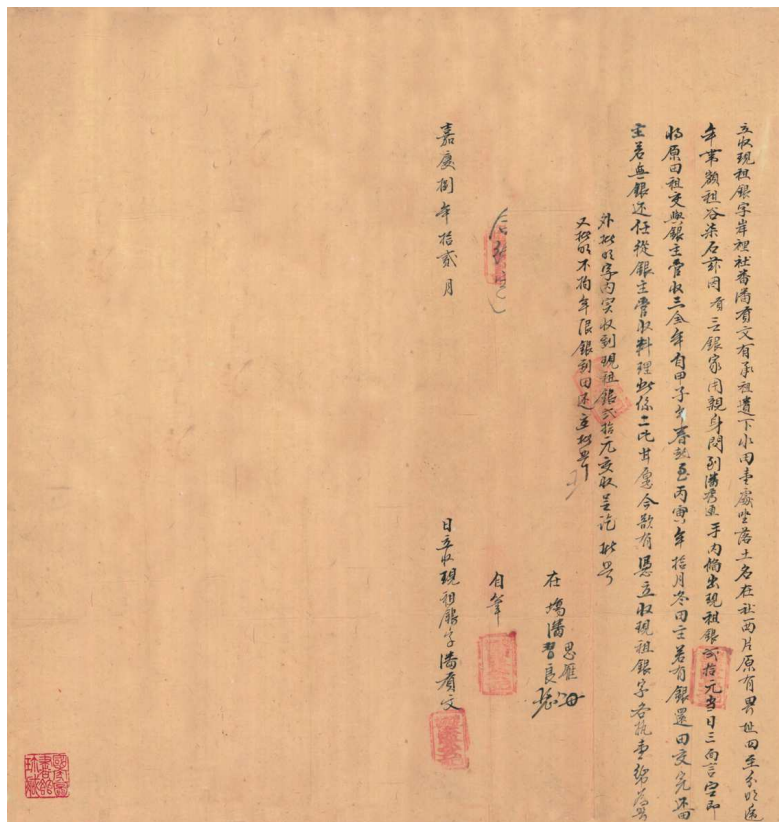 立收現租銀字岸裡社番潘賢文有承祖遺下水田壹處坐落土名在社西片原有界址四至分明逐
年業額租谷柒石茲因乏銀家用親身問到潘秀 手內備出現租銀弍拾元當日三面言定即
將原田租交與銀主管收三全年自甲子年春起至丙寅年拾月冬田主若有銀還田交完還田
主若無銀還任從銀主管收料理此係二比甘愿今欲有憑立收現租銀字各执壹紙為照
外批明字內实收到現租銀弍拾元交收足訖批照
又批明不拘年限銀到田还立批照
在塲潘
思
習良
自筆
嘉慶捌年拾貳月
日立收現租銀字潘賢文
國家圖書館珍藏